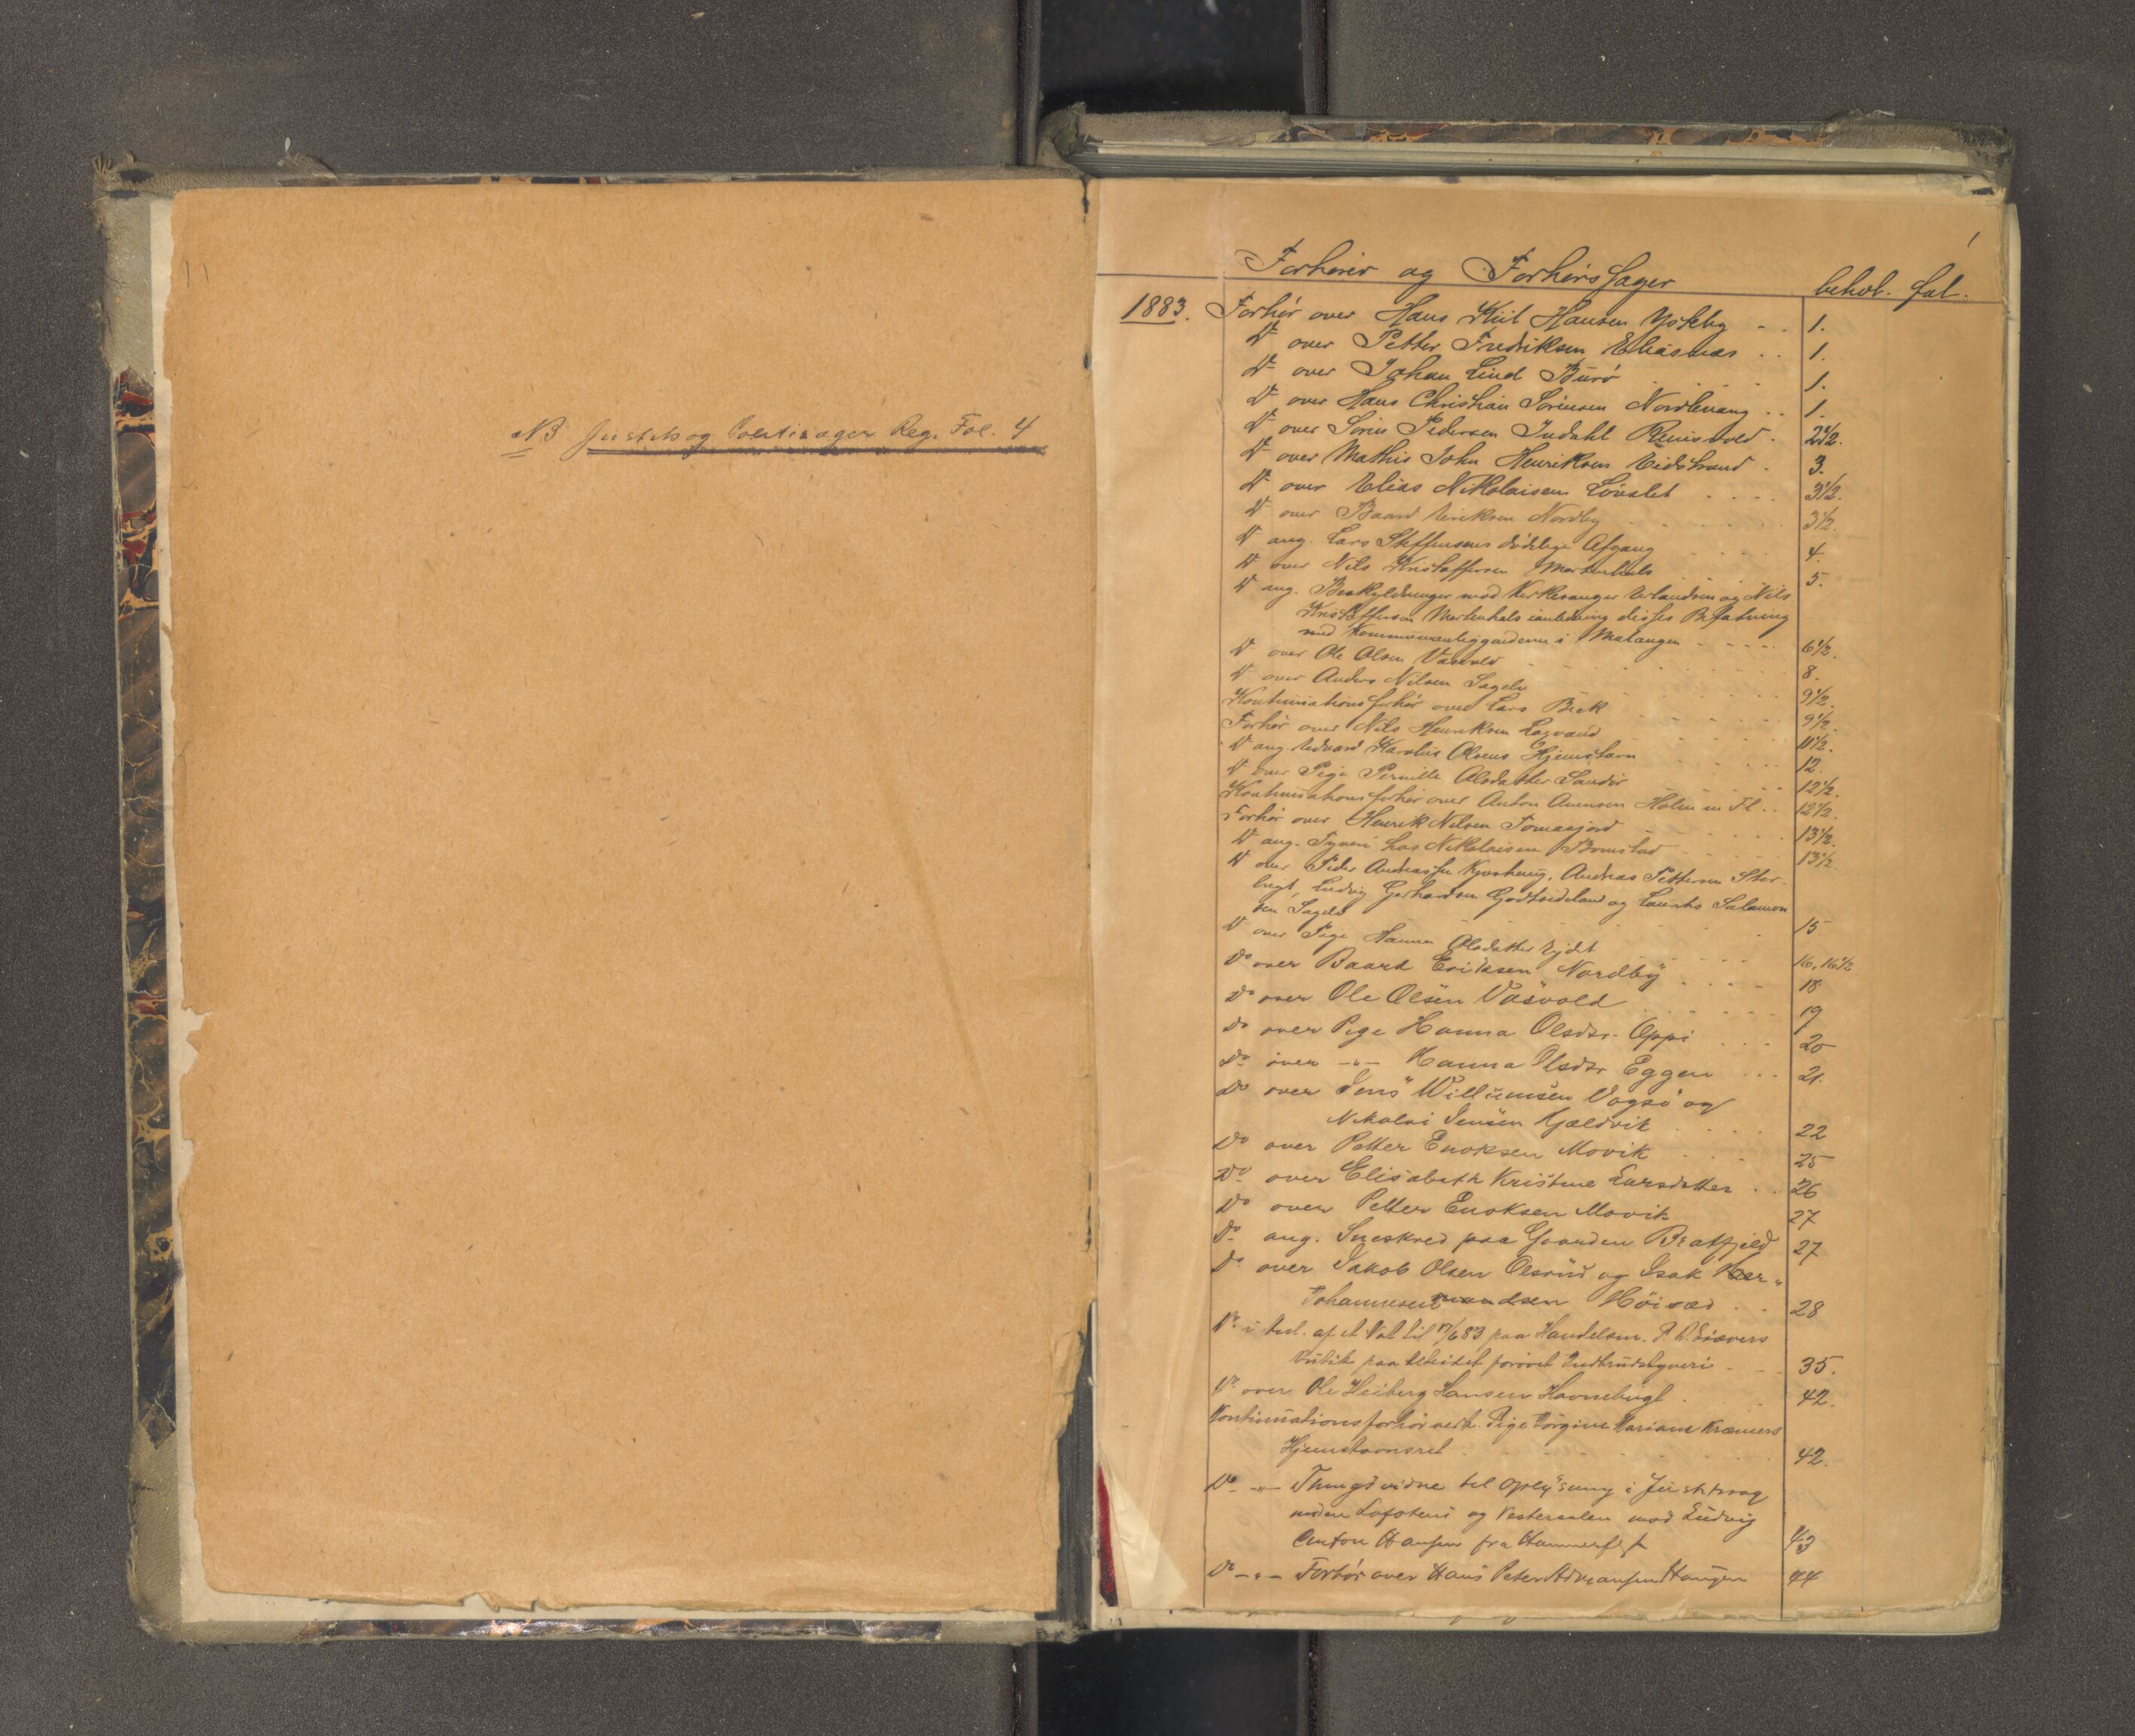 NB Justits og Politisager Reg. Fol. 4
1
Forhører og Forhørssager behol. fol.
1883. Forhør over Hans Kiil Hansen .. 1.
Do over Petter Fredriksen Eliasnæs .. 1.
Do over Johan Lind Burø .... 1.
Do over Hans Christian Sørensen .. 1.
Do over Søren Pedersen Indahl . 2 1/2.
Do over Mathis John Henriksen Eidstrand . 3.
Do over Elias Nikolaisen .... 3 1/2.
Do over Baard Eriksen Nordby 3 1/2.
Do ang. Lars Steffensens dødelige Afgang 4.
Do over Nils Kristoffersen Mortenhals 5.
Do ang. Beskyldninger mod Kirkesanger Erlandsen og Nils
Kristoffersen Mortenhals ianledning disses Befatning
med i Malangen 6 1/2.
Do over Ole Olsen Vasvold 8.
Do over Anders Nilsen Sagelv 9 1/2.
Kontinuationsforhør over Lars Beck 9 1/2.
Forhør over Nils Henriksen 11 1/2.
Do ang. Edvard Karolius Olsens Hjemstavn 12.
Do over Pige Pernille Olsdatter Sandør 12 1/2.
Kontinuationsforhør over Anton Holm m Fl .. 12 1/2.
Forhør over Henrik Nilsen Tomasjord 13 1/2.
Do ang. Tyveri hos Nikolaisen Bomstad 13 1/2.
Do over Peder Andreassen , Andreas Pettersen Stor-
bugt, Ludvig Gerhardsen Godtsideland og Laurits Salamon
sen Sagelv 15
Do over Pige Hanna Olsdatter 16, 16 1/2
Do over Baard Eriksen Nordby .... 18
Do over Ole Olsen Vasvold 19
Do over Pige Hanna Olsdtr. Oppi ... 20
Do over -"- Hanna Olsdtr Eggen ... 21.
Do over Jens Willumsen Vagsø og
Nikolai Jensen Kjældvik 22
Do over Petter Enoksen Movik ... 25
Do over Elisabeth Kristine Larsdatter .. 26
Do over Petter Enoksen Movik 27
Do ang. Sneskred paa Gaarden Bratfjeld 27
Do over Jakob Olsen Olsrud og Isak Her-
Johannesen mandsen .. 28
Do i Anl. af et Nat til 17/6 83 paa Handelsm. P. Siævers
Butik paa forøvet Indbrudstyveri - - 35.
Do over Ole Heiberg Hansen Havnebugt . 42.
Kontinuationsforhør vedk. Pige Jørgine Mariane Kræmers
Hjemstavnsret 42.
Do -"- Thingsvidne til Oplysning i Justitssag
Lofotens og Vesteraalen mod Ludvig
Anton Hansen fra Hammerfest 43
Do -"- Forhør over Hans Peter Haugen 44